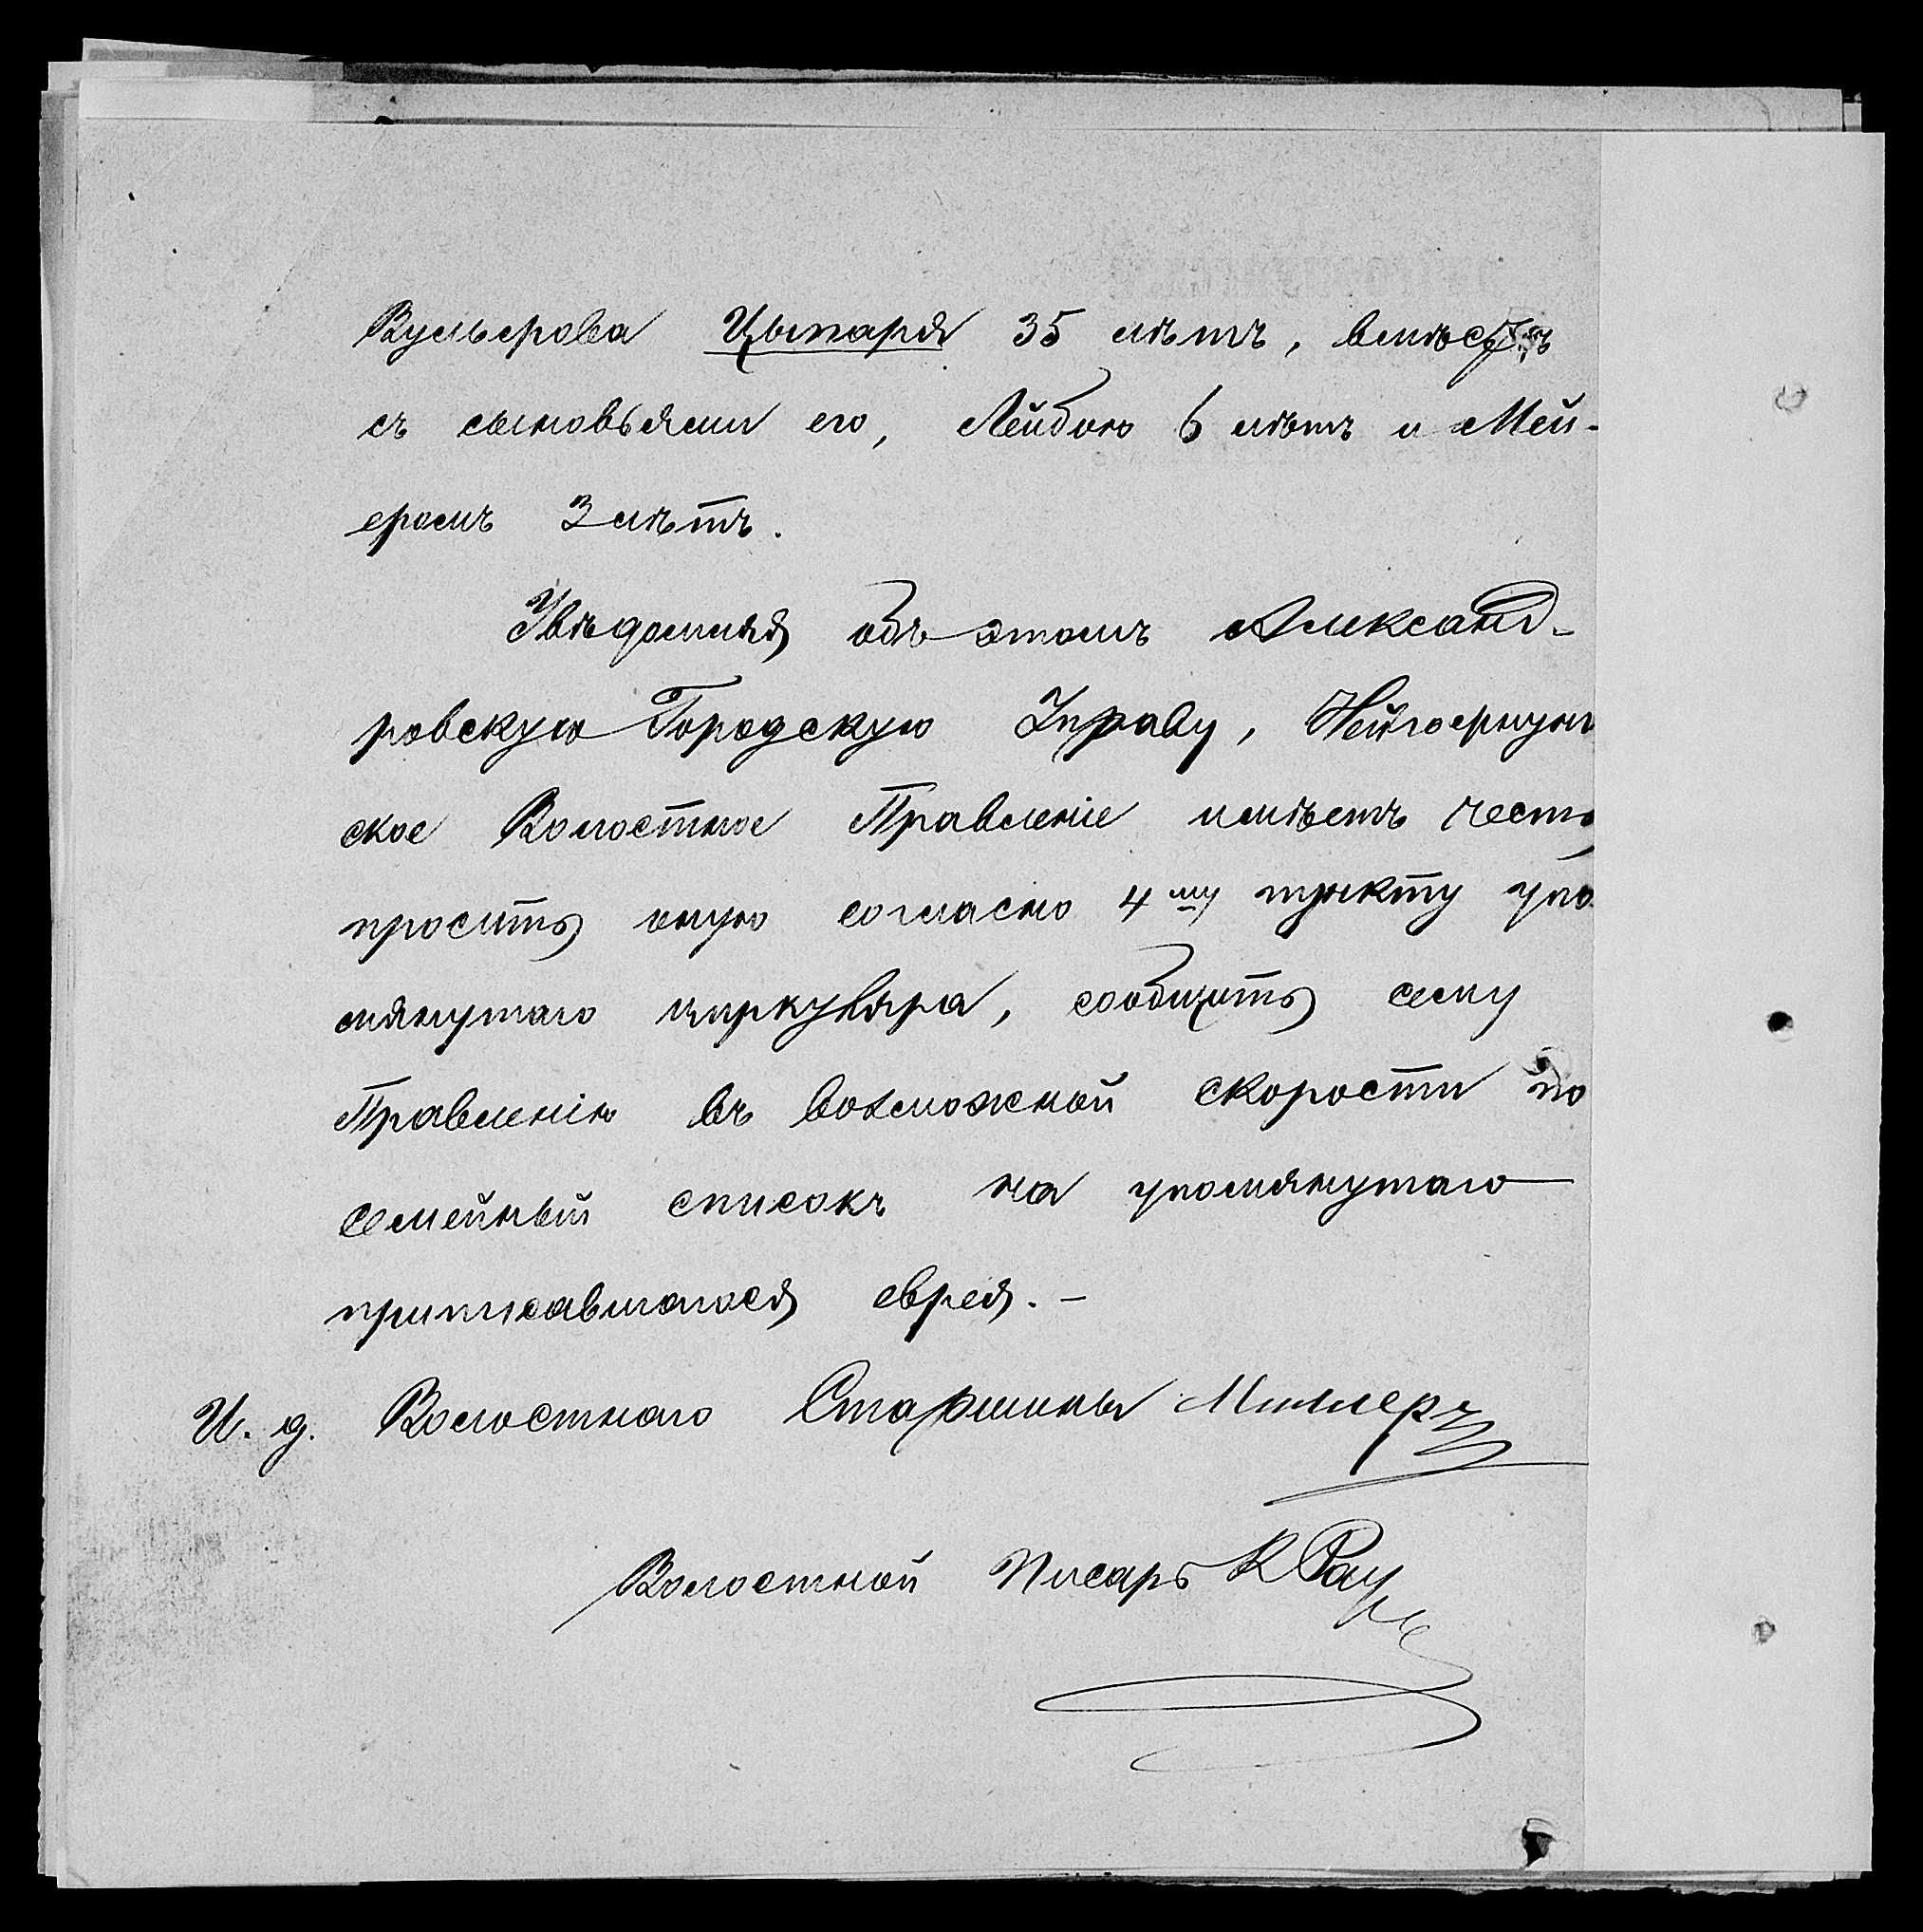 Вульерова Цыпаря 35 лѣтъ, вмѣстѣ
съ сыновьями его, Лейбою 6 лѣтъ и Мей-
еромъ 3 лѣтъ.
Увѣдомляя объ этомъ Александ-
ровскую Городскую Управу, Нейгоернун
ское Волостное Правленіе имѣетъ честь
просить оную согласно 4му пункту упо
мянутаго циркуляра, сообщить сему
Правленію въ возможной скорости по
семейный списокъ на упомянутаго
приписавшагося еврея. –
И. д. Волостнаго Старшины Миллеръ
Волостной Писарь К